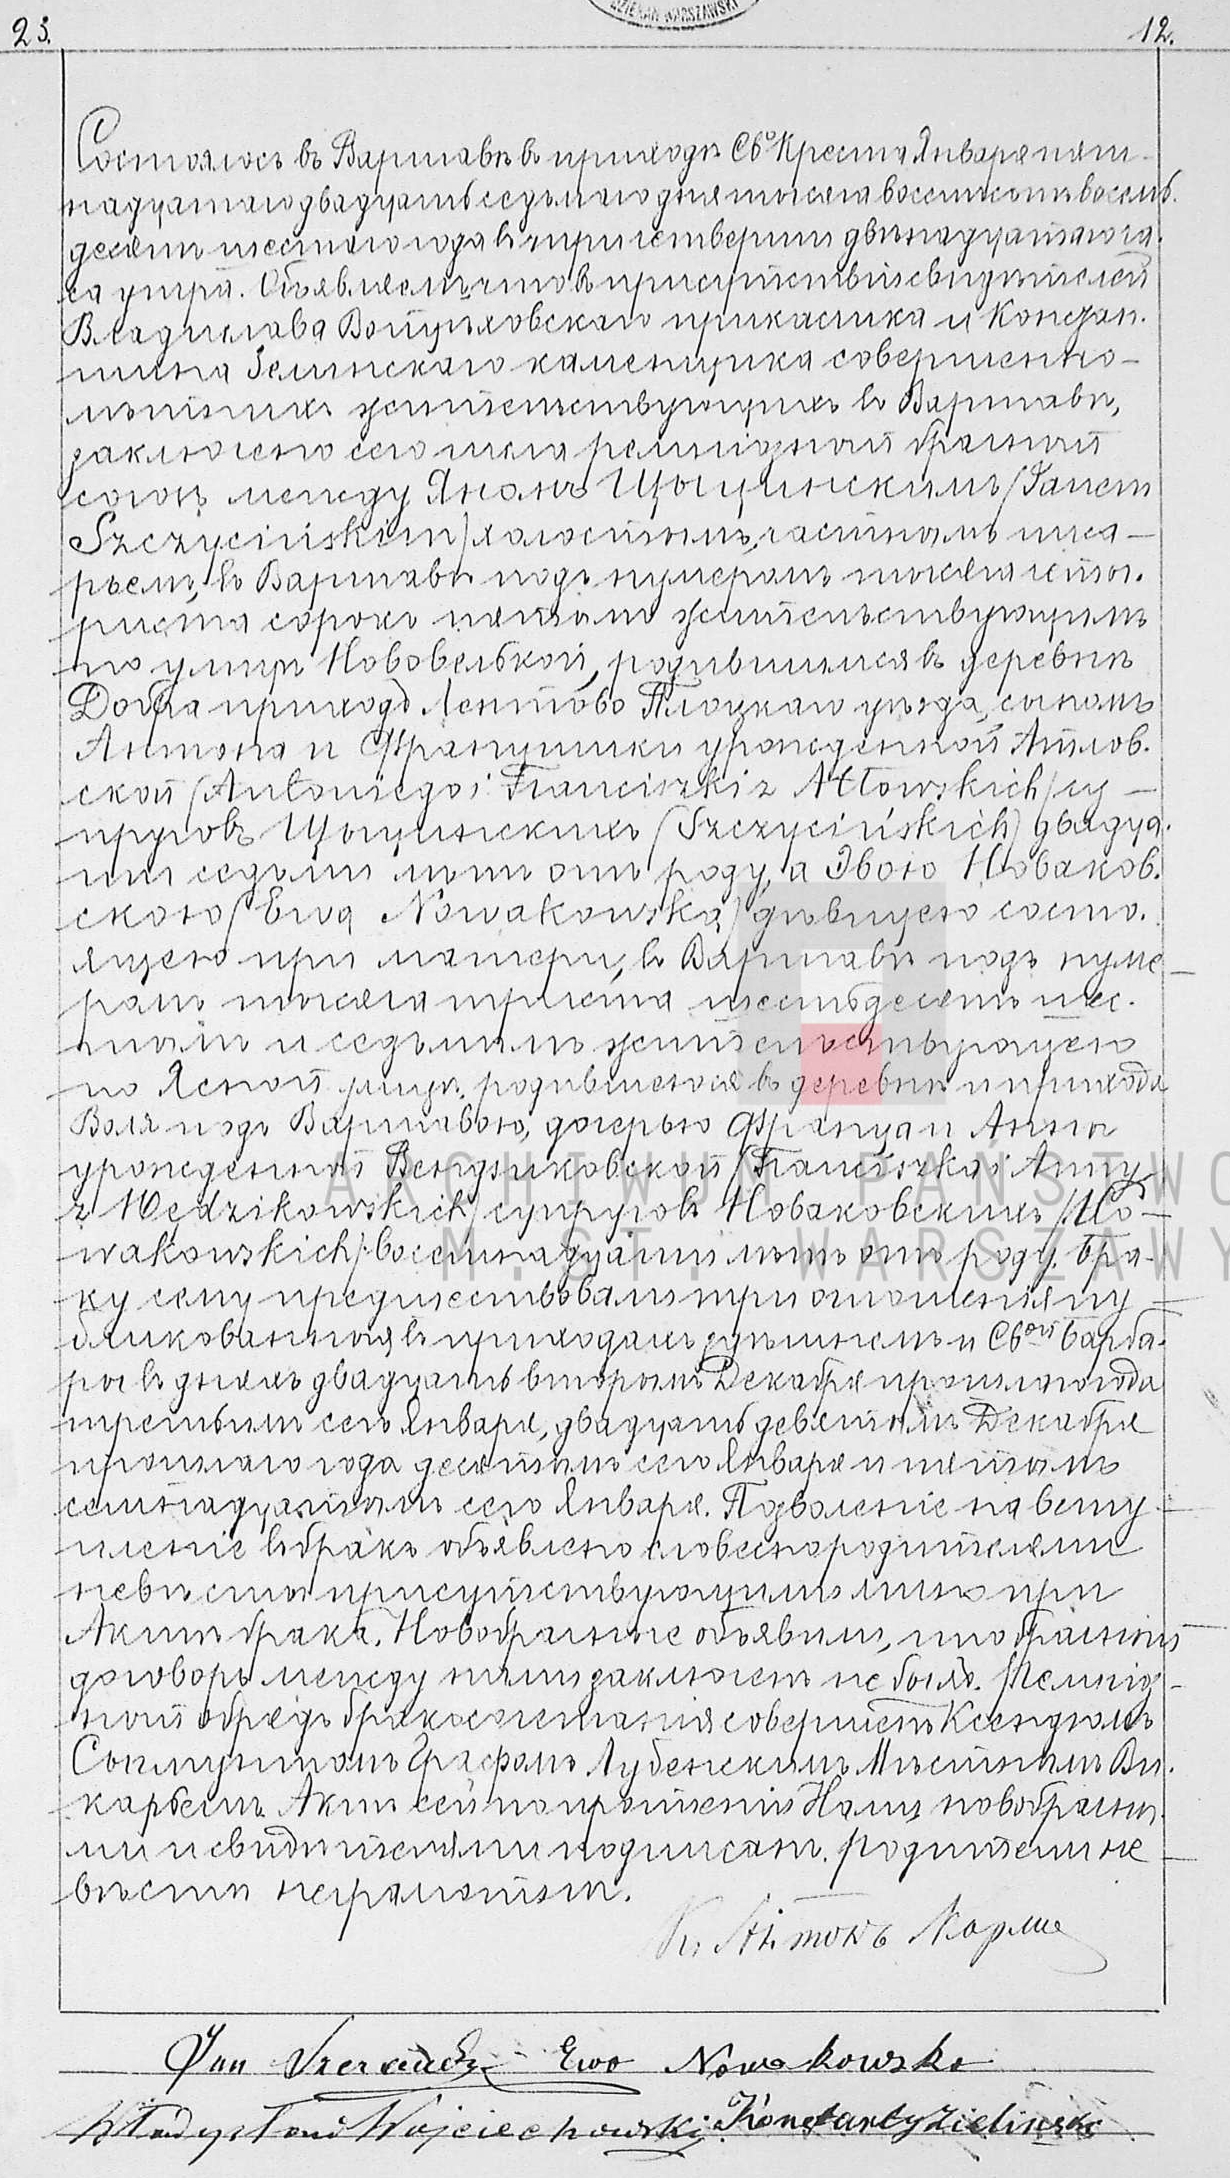 DZIEKAN WARSZAWSKI
23. 12.
Состоялось въ Варшавѣ въ приходѣ Свго Креста Января пят-
надцатаго двадцать седьмаго дня тысяча восемьсотъ восемь
десятъ шестаго года въ три четверти двѣнадцатаго ча-
са утра. Объявляемъ что въ присутствіи свидѣтелей
Владислава Войцѣховскаго прикащика и Констан-
тина Зелинскаго каменщика совершенно-
лѣтнихъ жительствующихъ въ Варшавѣ,
заключено сего числа религіозный брачный
союзъ между Яномъ Щыцинскимъ /Janem
Szczycińskim/ холостымъ, частнымъ писа-
рьемъ, въ Варшавѣ подъ нумеромъ тысяча четы-
риста сорокъ пятымъ жительствующимъ
по улицѣ Нововельской, родившимся въ деревнѣ
приходѣ Плоцкаго уѣзда, сыномъ
Антона и Францишки урожденной Атлов-
ской /Antoniego i Franciszki z Atłowskich/ су-
пруговъ Щыцинскихъ /Szczycińskich/ двадца-
ти седьми лѣтъ отъ роду, а Эвою Новаков-
скою /Ewą Nowakowską/ дѣвицею состо-
ящею при матери, въ Варшавѣ подъ нуме-
ромъ тысяча триста шестьдесятъ шес-
тымъ и седьмымъ жительствующею
по Ясной улицѣ, родившеюся въ деревнѣ и приходѣ
Воля подъ Варшавою, дочерью Францa и Анны
урожденной Вендзиковской /Franciszka i Anny
z Wędzikowskich/ супруговъ Новаковскихъ /No-
wakowskich/ восемнадцати лѣтъ отъ роду. Бра-
ку сему предшествовали три оглошенія пу-
бликованныя въ приходахъ здѣшнемъ и Свой Барба-
ры въ дняхъ двадцать второмъ Декабря прошлаго года
третьимъ сего Января, двадцать девятымъ Декабря
прошлаго года десятымъ сего Января и пятымъ
семнадцатымъ сего Января. Позволеніе на всту-
пленіе въ бракъ объявлено словесно родителями
невѣсты присутствующими лично при
Актѣ брака. Новобрачные объявили, что брачный
договоръ между ними заключенъ не былъ. Религіоз-
ный обрядъ бракосочетанія совершенъ Ксендзомъ
Графомъ Лубенскимъ Мѣстнымъ Ви-
карьемъ. Актъ сей по прочтеніи Нами, новобрачны-
ми и свидѣтелями подписанъ. родители не-
вѣсты неграмотны.
Кс. Антонъ
Jan Ewa Nowakowska
Władysław Wojciechowski Konstanty Zieliński
ARCHIWUM PAŃSTWO
M. ST. WARSZAWY